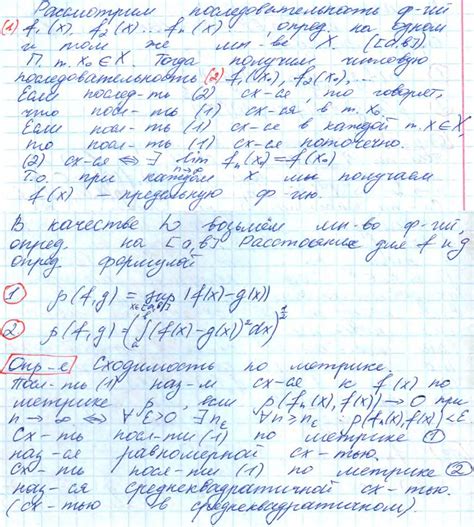 Рассмотрим последовательность ф-ций
(1) f₁(x), f₂(x)... fₙ(x) , опред. на одном
и том же мн-ве X ([a,b]).
П. т. x₀∈X. Тогда получим числовую
последовательность (2) f₁(x₀), f₂(x₀),...
Если послед-ть (2) сх-ся то говорят,
что посл-ть (1) сх-ся в т. x₀
Если посл-ть (1) сх-ся в каждой т. x∈X,
то посл-ть (1) сх-ся поточечно.
(2) сх-ся ⇔ ∃ lim n→∞ fₙ(x₀)=f(x₀)
Т.о. при каждом x мы получаем
f(x) – предельную ф-цию.
В качестве возьмём мн-во ф-ций,
опред. на [a,b] Расстояние для f и g
опред формулой
① ρ(f,g) = sup x∈[a,b] |f(x)-g(x)|
② ρ(f,g) = (∫ₐᵇ(f(x)-g(x))²dx)^½
Опр-е Сходимость по метрике.
Посл-ть (1) наз-м сх-ся к f(x) по
метрике ρ, если ρ(fₙ(x),f(x))→0 при
n→∞ ⇔ ∀ε>0 ∃nε ∀n≥nε : ρ(fₙ(x),f(x))<ε
Сх-ть посл-ти (1) по метрике ①
наз-ся равномерной сх-тью.
Сх-ть посл-ти (1) по метрике ②
наз-ся среднеквадратичной сх-тью.
(сх-тью в среднеквадратичном)